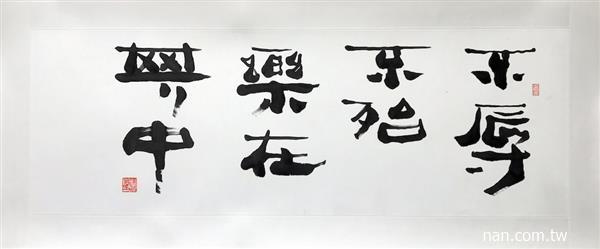 不辱
不殆
樂在
其中
nan.com.tw